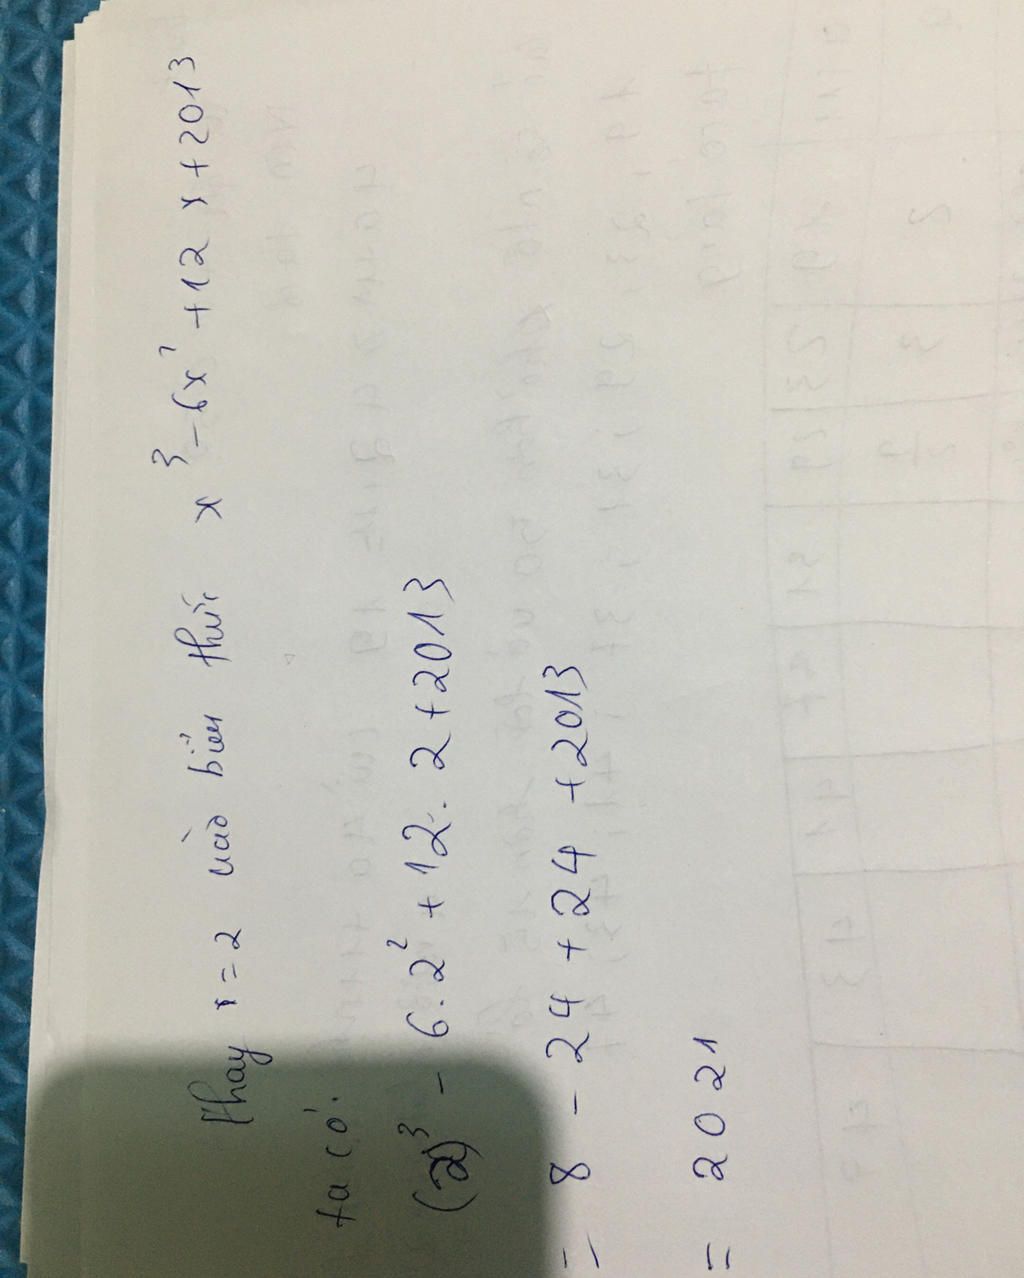 Thay x = 2 vào biểu thức x³ - 6x² + 12x + 2013
ta có:
(2)³ - 6.2² + 12.2 + 2013
= 8 - 24 + 24 + 2013
= 2021